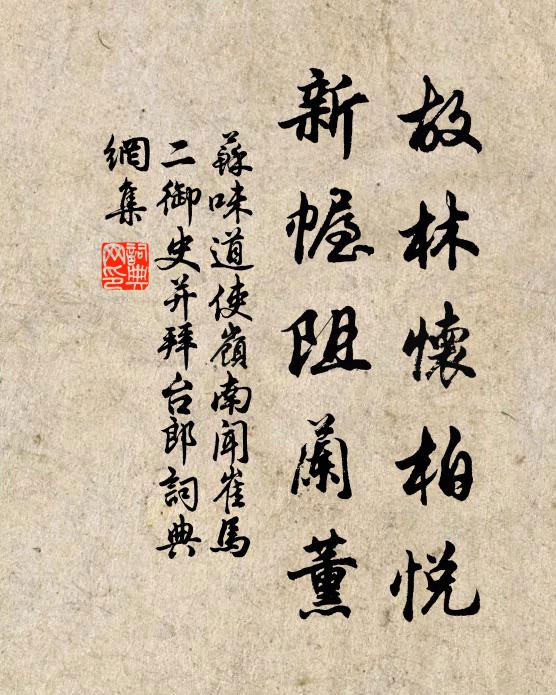 故林懷柏悅
新幄阻蘭薰
蘇味道使嶺南聞崔馬
二御史并拜台郎詞典
網集
詞典
网印